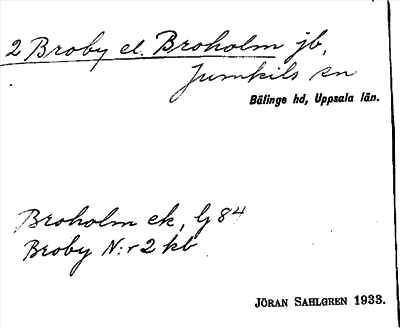 2 Broby el. Broholm jb,
Jumkils sn
Bälinge hd, Uppsala län.
Broholm ek, lj 84
Broby N:r 2 kb
JÖRAN SAHLGREN 1933.